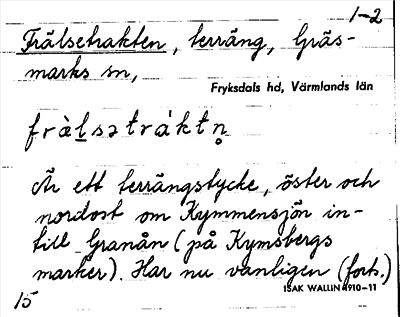 1-2
Frälsetrakten, terräng, Gräs-
marks sn,
Fryksdals hd, Värmlands län
fràlsətrák̀tn̥
Är ett terrängstycke, öster och
nordost om Kymmensjön in-
till Granån (på Kymsbergs
marker). Har nu vanligen (forts.)
ISAK WALLIN 1910-11
15